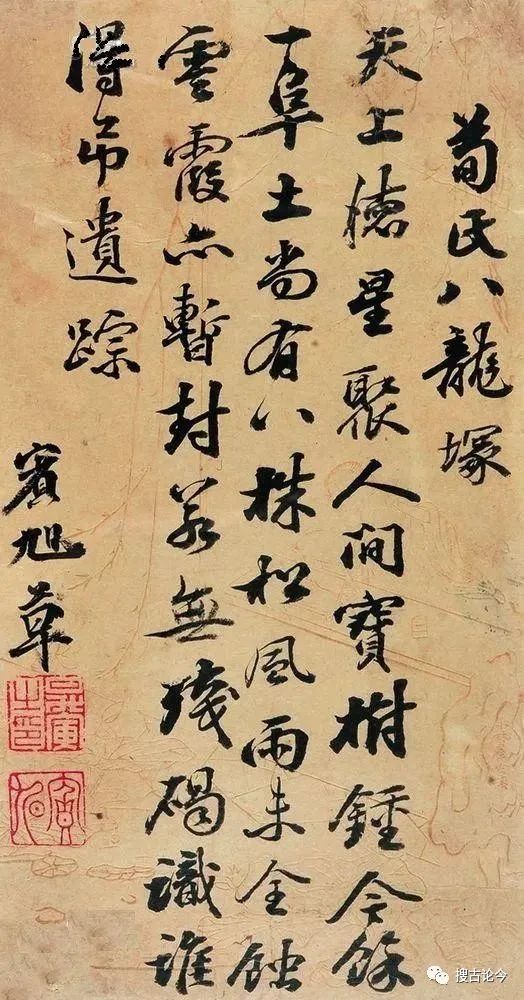 荀氏八龍塚
天上德星聚人間寶樹鍾今餘
一阜土尚有八株松風雨未全蝕
雲霞亦暫封若無殘碣識誰
得吊遺踪
賓旭草
搜古论今